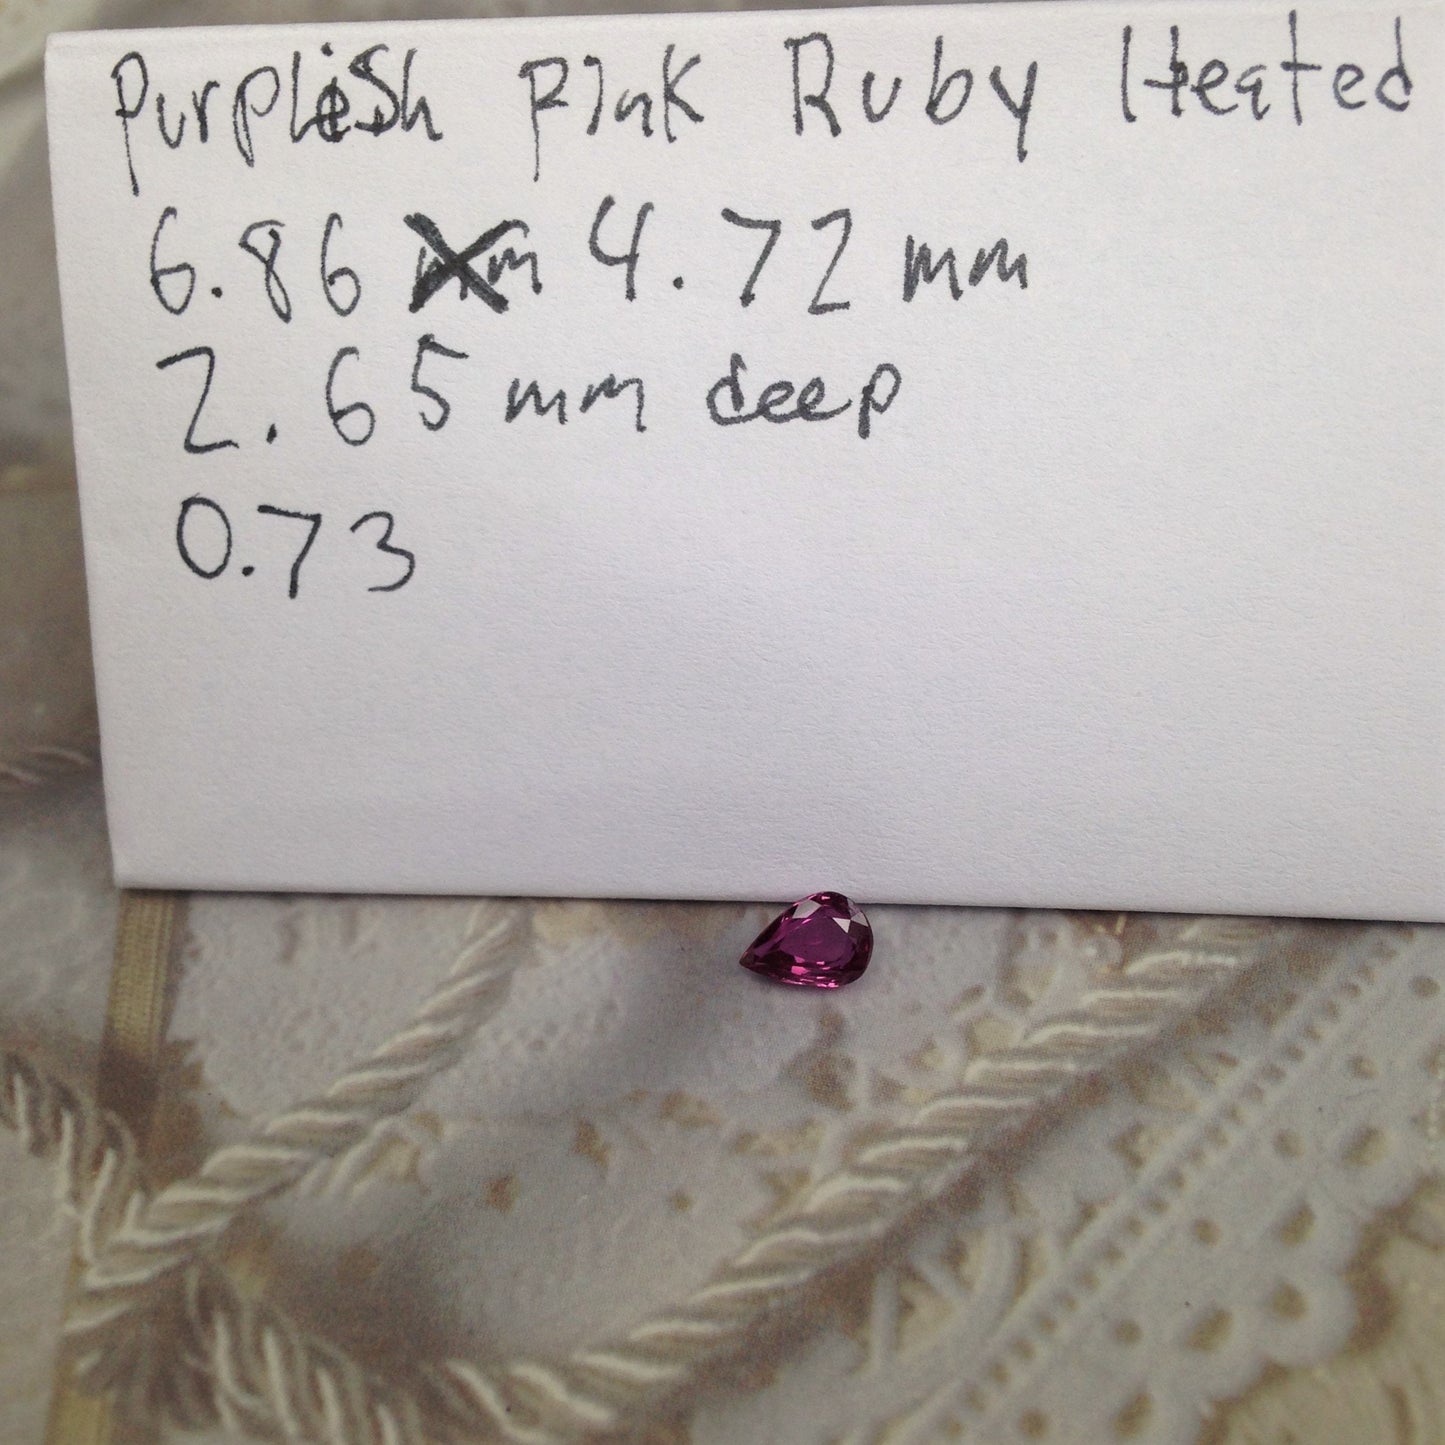 Purplish Pink Ruby Heated
6.86 X 4.72 mm
2.65 mm deep
0.73